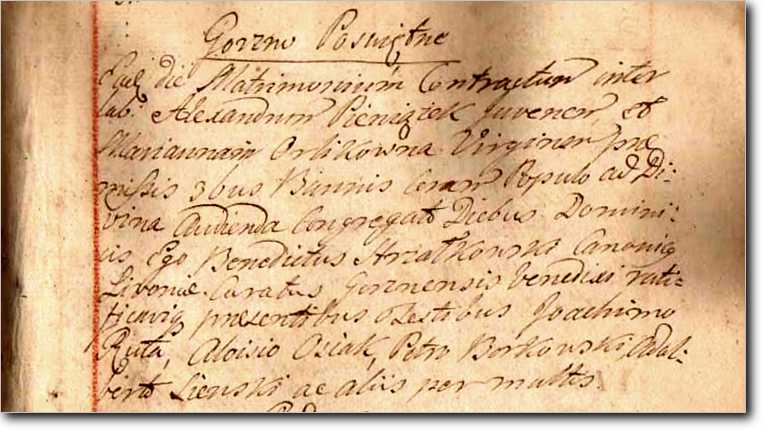 Gorzno Poswiętne
Ead. die Matrimonium Contractum inter
lab: Alexandrum Pieniążek Juvenem, et
Mariannam Orlikowna Virginem præ
missis 3bus Bannis Coram Populo ad Di-
vina Audienda Congregato Diebus Domini:
cis Ego Benedictus Canonicq
Livoniæ Curatus Gorznensis benedixi rati-
ficaviq præsentibus Testibus Joachimo
Ruta, Aloisio Osiak, Petro Borkowski, Adal-
berto Lienski ac aliis per multis.